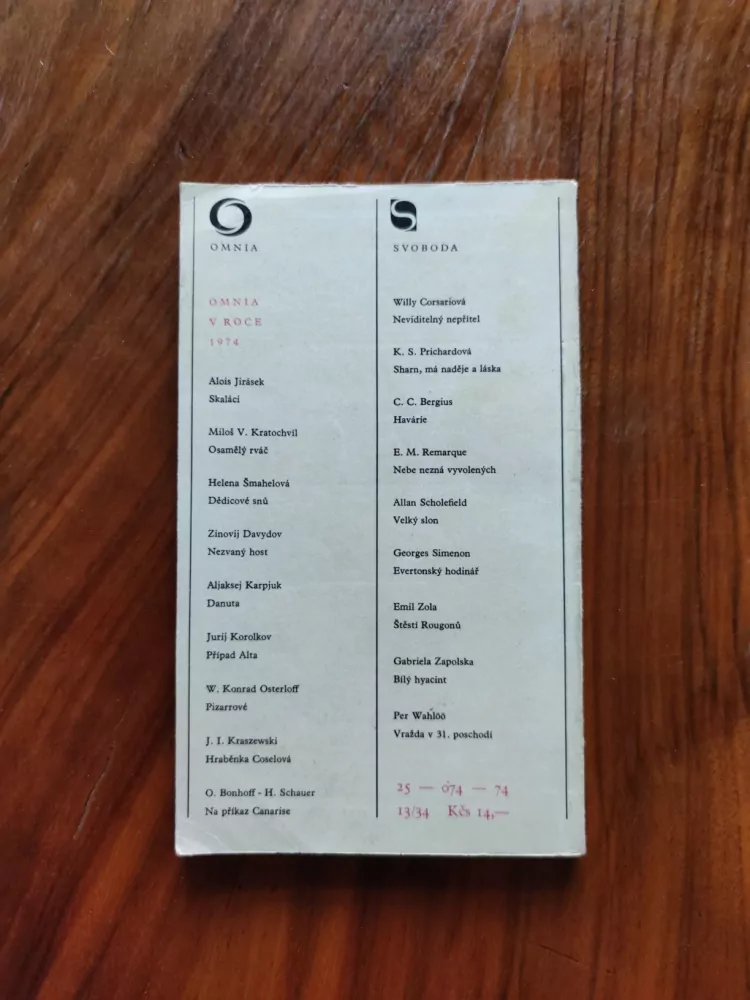 OMNIA
OMNIA
V ROCE
1974
Alois Jirásek
Skaláci
Miloš V. Kratochvíl
Osamělý rváč
Helena Šmahelová
Dědicové snů
Zinovij Davydov
Nezvaný host
Aljaksej Karpjuk
Danuta
Jurij Korolkov
Případ Alta
W. Konrad Osterloff
Pizarrové
J. I. Kraszewski
Hraběnka Coselová
O. Bonhoff - H. Schauer
Na příkaz Canarise
S
SVOBODA
Willy Corsariová
Neviditelný nepřítel
K. S. Prichardová
Sharn, má naděje a láska
C. C. Bergius
Havárie
E. M. Remarque
Nebe nezná vyvolených
Allan Scholefield
Velký slon
Georges Simenon
Evertonský hodinář
Emil Zola
Štěstí Rougonů
Gabriela Zapolska
Bílý hyacint
Per Wahlöö
Vražda v 31. poschodí
25 — 074 — 74
13/34 Kčs 14,—